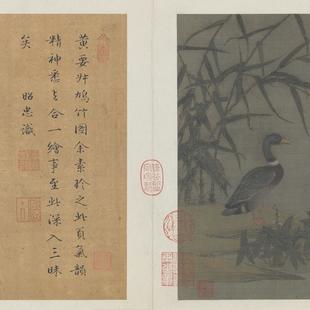 黃要叔鳩竹圖余素珍之此頁氣韻
精神悉与合一繪事至此深入三昧
矣　昭忠識